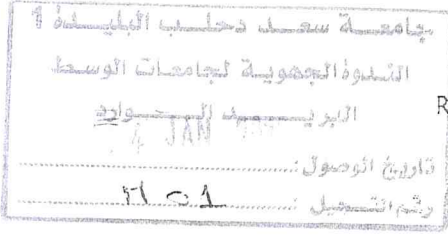 جامعة سعد دحلب البليدة 1
الندوة الجهوية لجامعات الوسط
البريد الوارد
JAN
تاريخ الوصول :
رقم التسجيل :
R